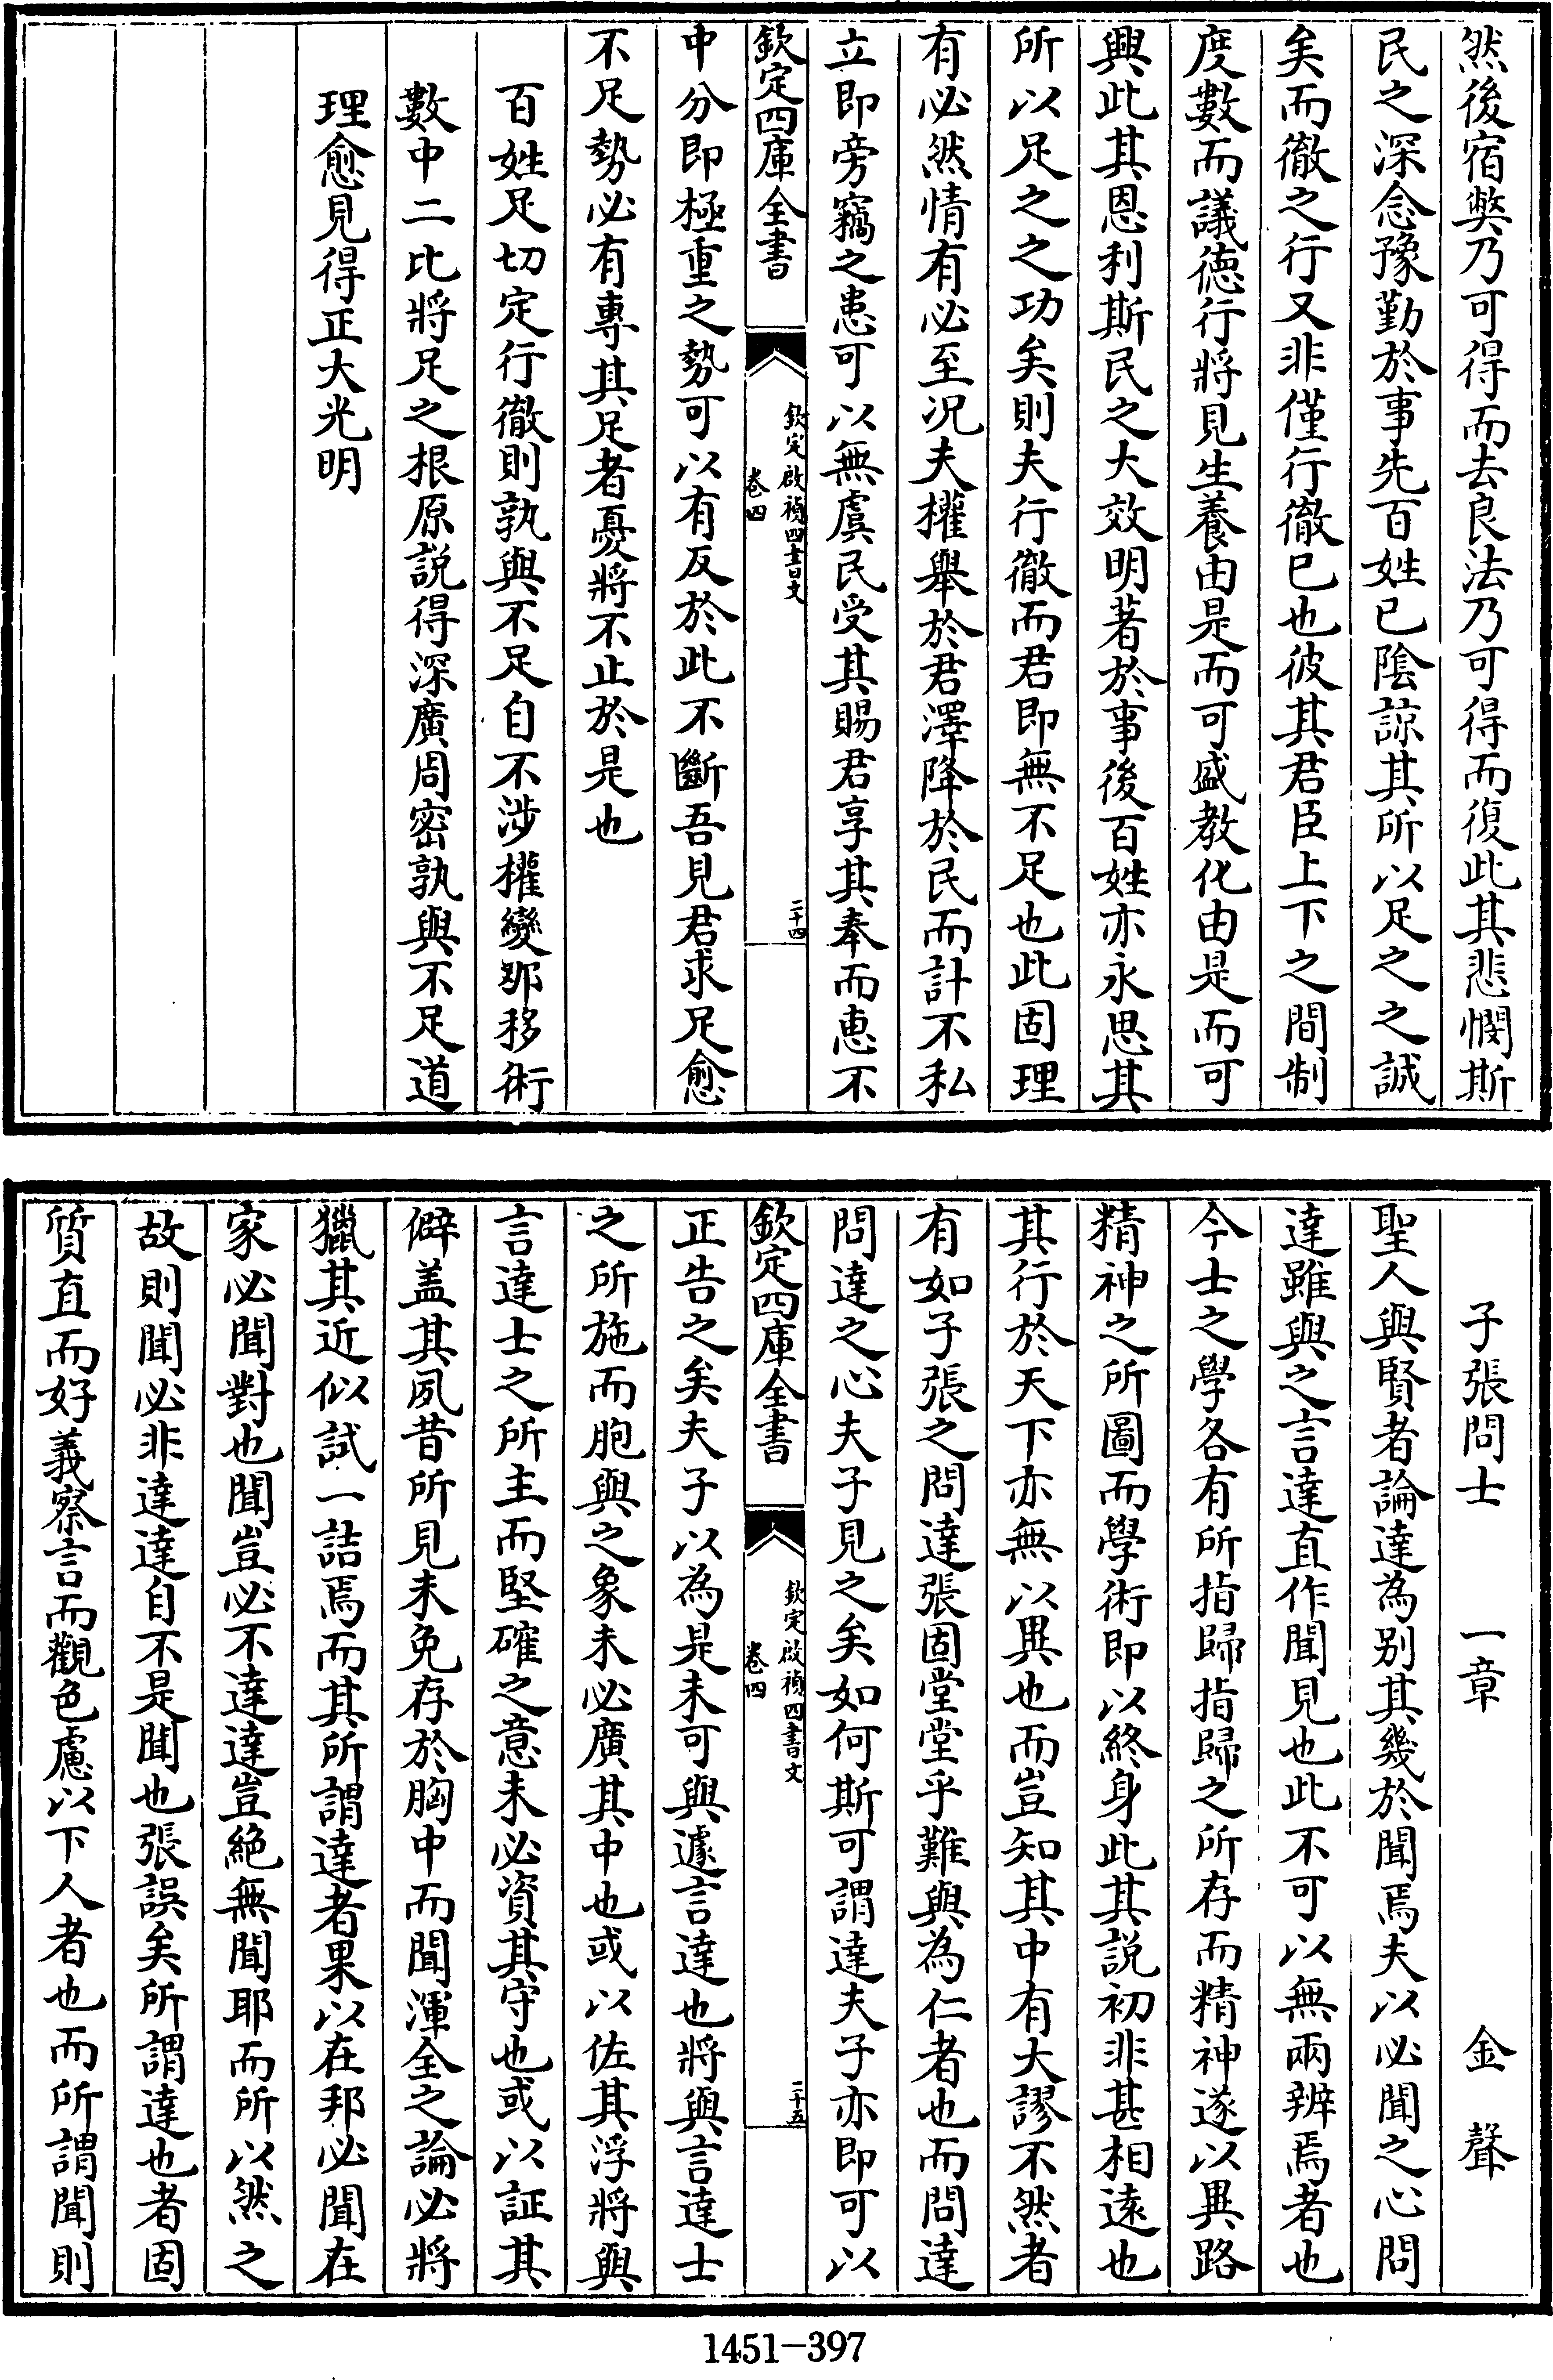 然後宿弊乃可得而去良法乃可得而復此其悲憫斯
民之深念豫勤於事先百姓已陰諒其所以足之之誠
矣而徹之行又非僅行徹已也彼其君臣上下之間制
度數而議德行將見生養由是而可盛教化由是而可
興此其恩利斯民之大效明著於事後百姓亦永思其
所以足之之功矣則夫行徹而君即無不足也此固理
有必然情有必至况夫權舉於君澤降於民而計不私
立即旁竊之患可以無虞民受其賜君享其奉而惠不
欽定四庫全書
欽定啟禎四書文
卷四
二十四
中分即極重之勢可以有反於此不斷吾見君求足愈
不足勢必有專其足者憂將不止於是也
百姓足切定行徹則孰與不足自不涉權變那移術
數中二比將足之根原説得深廣周密孰與不足道
理愈見得正大光明
子張問士 一章 金聲
聖人與賢者論達為别其幾於聞焉夫以必聞之心問
達雖與之言達直作聞見也此不可以無兩辨焉者也
今士之學各有所指歸指歸之所存而精神遂以異路
精神之所圖而學術即以終身此其説初非甚相遠也
其行於天下亦無以異也而豈知其中有大謬不然者
有如子張之問達張固堂堂乎難與為仁者也而問達
問達之心夫子見之矣如何斯可謂達夫子亦即可以
欽定四庫全書
欽定啟禎四書文
卷四
二十五
正告之矣夫子以為是未可與遽言達也將與言達士
之所施而胞與之象未必廣其中也或以佐其浮將與
言達士之所主而堅確之意未必資其守也或以証其
僻盖其夙昔所見未免存於胸中而聞渾全之論必將
獵其近似試一詰焉而其所謂達者果以在邦必聞在
家必聞對也聞豈必不達達豈絶無聞耶而所以然之
故則聞必非達達自不是聞也張誤矣所謂達也者固
質直而好義察言而觀色慮以下人者也而所謂聞則
1451-397